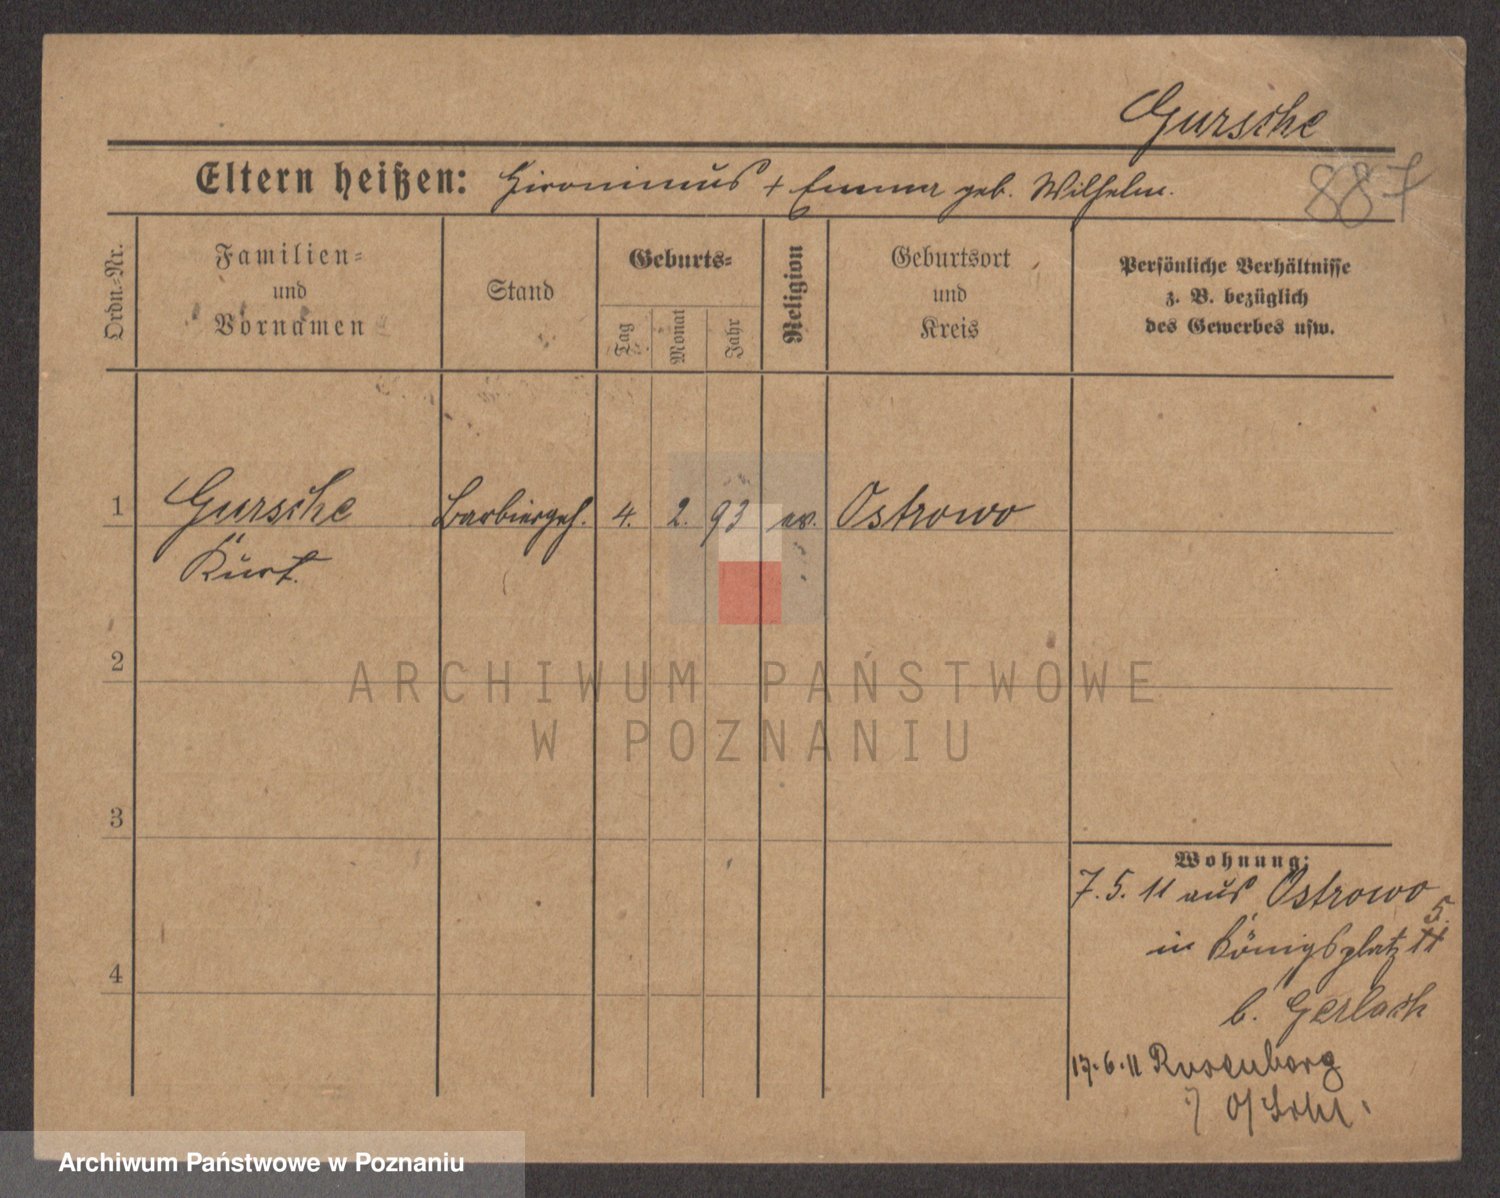 Gursche
887
Eltern heißen: Hironimus + Emma geb. Wilhelm.
Ordn.-Nr.
Familien-
und
Vornamen
Stand
Geburts-
Tag
Monat
Jahr
Religion
Geburtsort
und
Kreis
Persönliche Verhältnisse
z. B. bezüglich
des Gewerbes usw.
1 Gursche Barbiergeh. 4. 2. 93 ev. Ostrowo
Kurt.
2
3
4
Wohnung:
7. 5. 11 aus Ostrowo
in Königsplatz 5.
b. Gerlach
17.6.11 Rosenberg
O/Schl.
ARCHIWUM PAŃSTWOWE
W POZNANIU
Archiwum Państwowe w Poznaniu